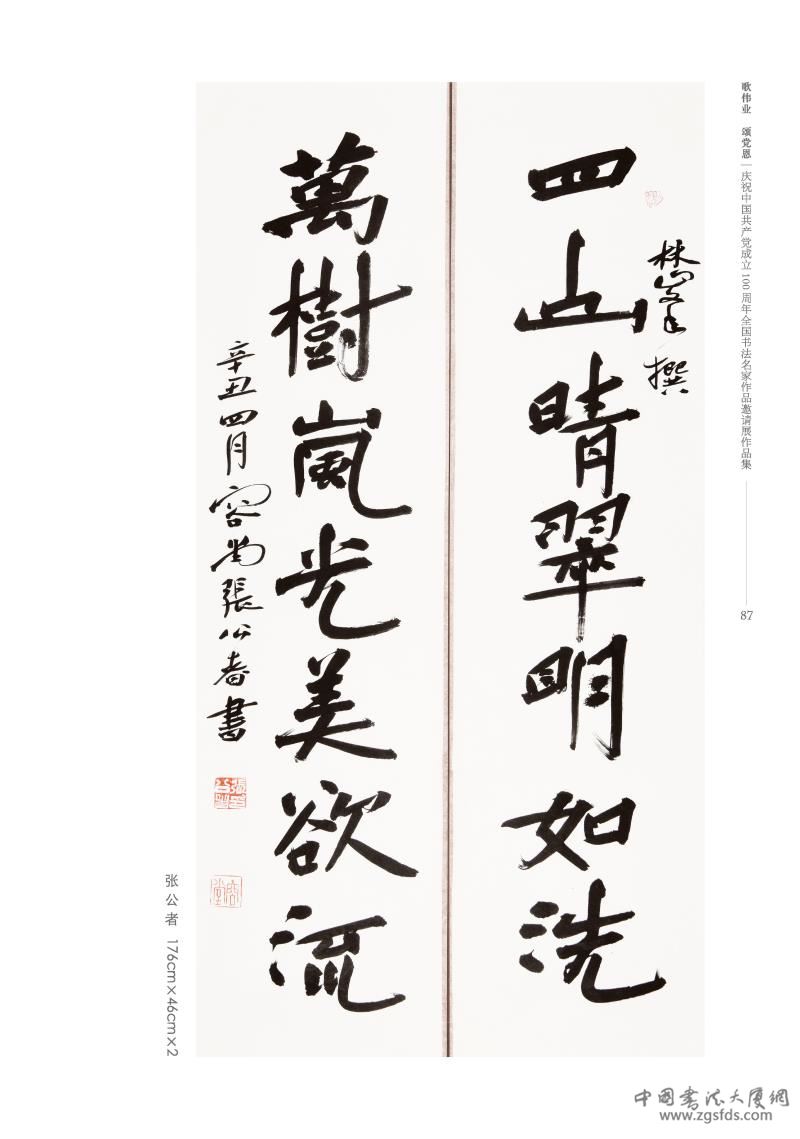 歌伟业 颂党恩 | 庆祝中国共产党成立100周年全国书法名家作品邀请展作品集
87
四山晴翠明如洗
撰
萬樹嵐光美欲流
辛丑四月容堂張公者書
张公者 176cm×46cm×2
中国书法大厦網
www.zgsfds.com